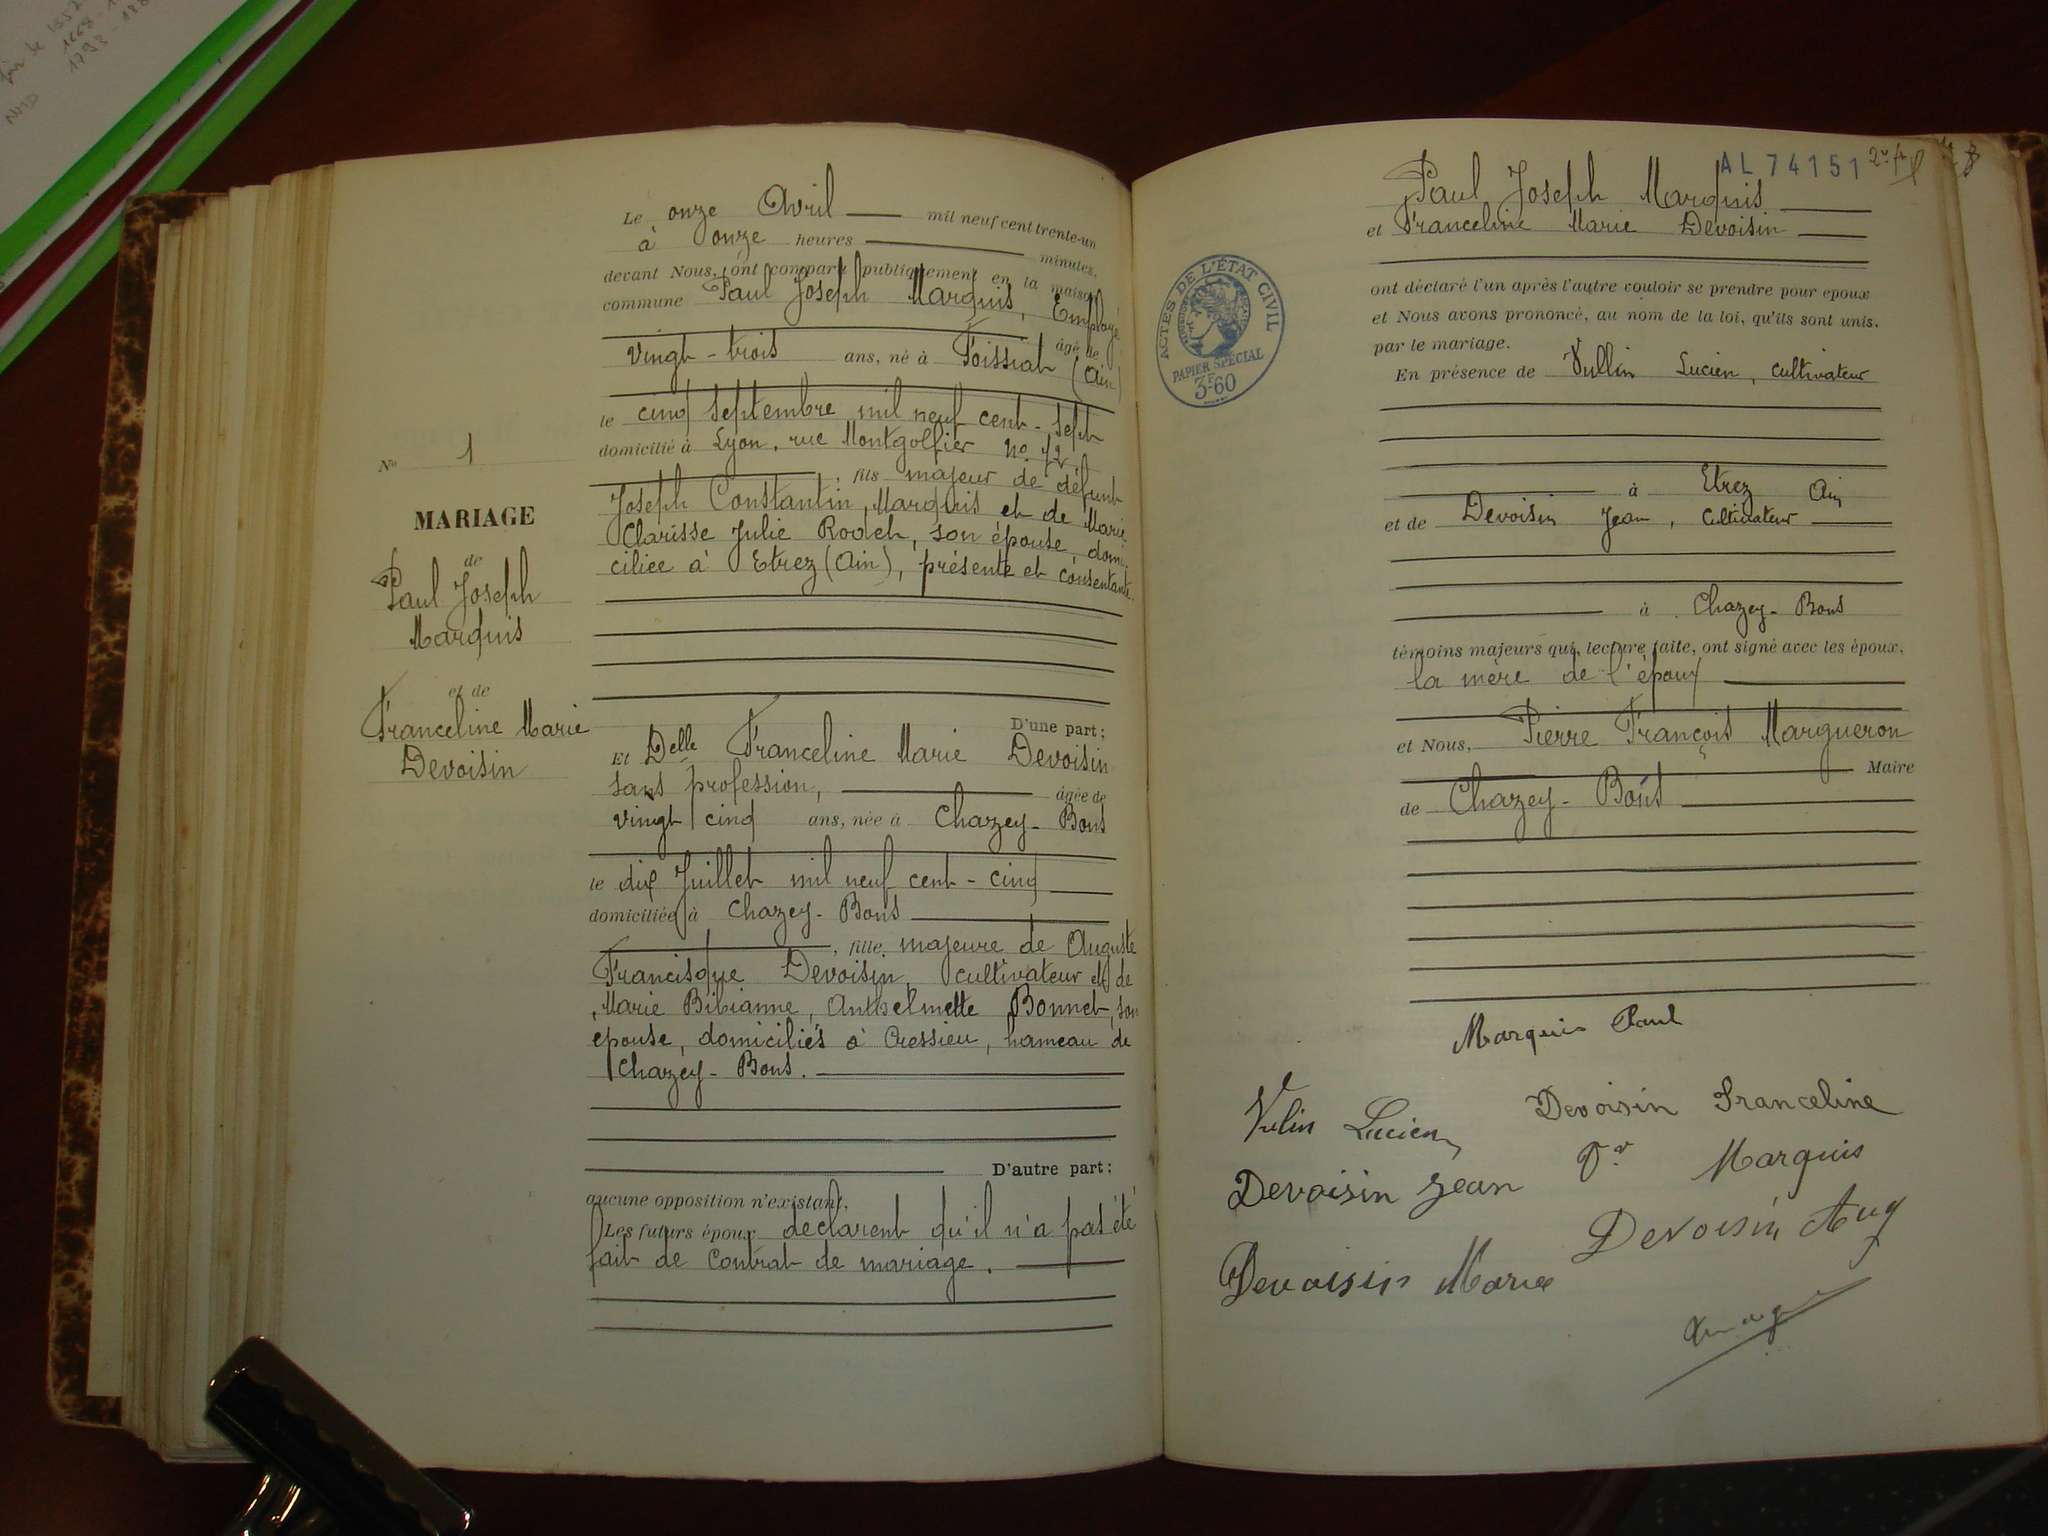 N° 1
MARIAGE
de
Paul Joseph
Marquis
et de
Franceline Marie
Devoisin
Le onze Avril mil neuf cent trente-un
à onze heures minutes,
devant Nous, ont comparu publiquement en la maison
commune Paul Joseph Marquis, Employé
âgé de
vingt-trois ans, né à Foissiat (Ain)
le cinq septembre mil neuf cent-sept
domicilié à Lyon, rue Montgolfier No 72
, fils majeur de défunt
Joseph Constantin, Marquis et de Marie
Clarisse Julie Rodet, son épouse, domi-
ciliée à Etrez (Ain), présente et consentante.
D'une part;
Et Delle Franceline Marie Devoisin
sans profession, âgée de
vingt cinq ans, née à Chazey-Bons
le dix Juillet mil neuf cent-cinq
domiciliée à Chazey-Bons
, fille majeure de Auguste
Francisque Devoisin, cultivateur et de
Marie Bibianne, Anthelmette Bonnet, son
épouse, domiciliés à Cressieu, hameau de
Chazey-Bons.
D'autre part:
aucune opposition n'existant,
Les futurs époux déclarent qu'il n'a pas été
fait de contrat de mariage.
AL 74151
Paul Joseph Marquis
et Franceline Marie Devoisin
ACTES DE L'ÉTAT CIVIL
PAPIER SPÉCIAL
3F60
ont déclaré l'un après l'autre vouloir se prendre pour epoux
et Nous avons prononcé, au nom de la loi, qu'ils sont unis.
par le mariage.
En présence de Vullin Lucien, cultivateur
à Etrez Ain
et de Devoisin Jean, cultivateur
à Chazey-Bons
témoins majeurs qui, lecture faite, ont signé avec les époux,
la mère de l'époux
et Nous, Pierre François Margueron
Maire
de Chazey-Bons
Marquis Paul
Vulin Lucien
Devoisin Franceline
Devoisin Jean
Vve Marquis
Devoisin Aug
Devoisin Marie